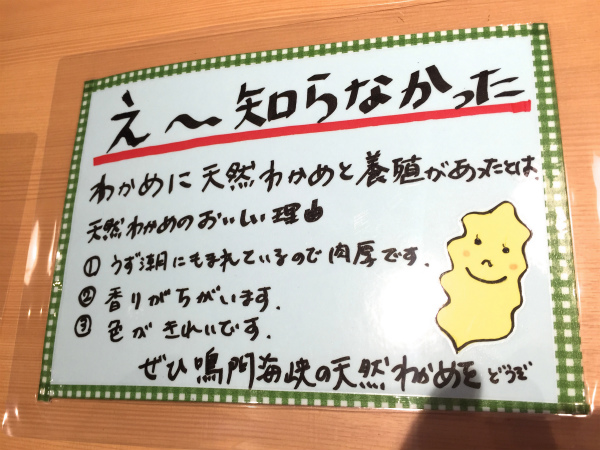 え〜知らなかった
わかめに天然わかめと養殖があったとは
天然わかめのおいしい理由
① うず潮にもまれているので肉厚です.
② 香りがちがいます.
③ 色がきれいです.
ぜひ鳴門海峡の天然わかめをどうぞ